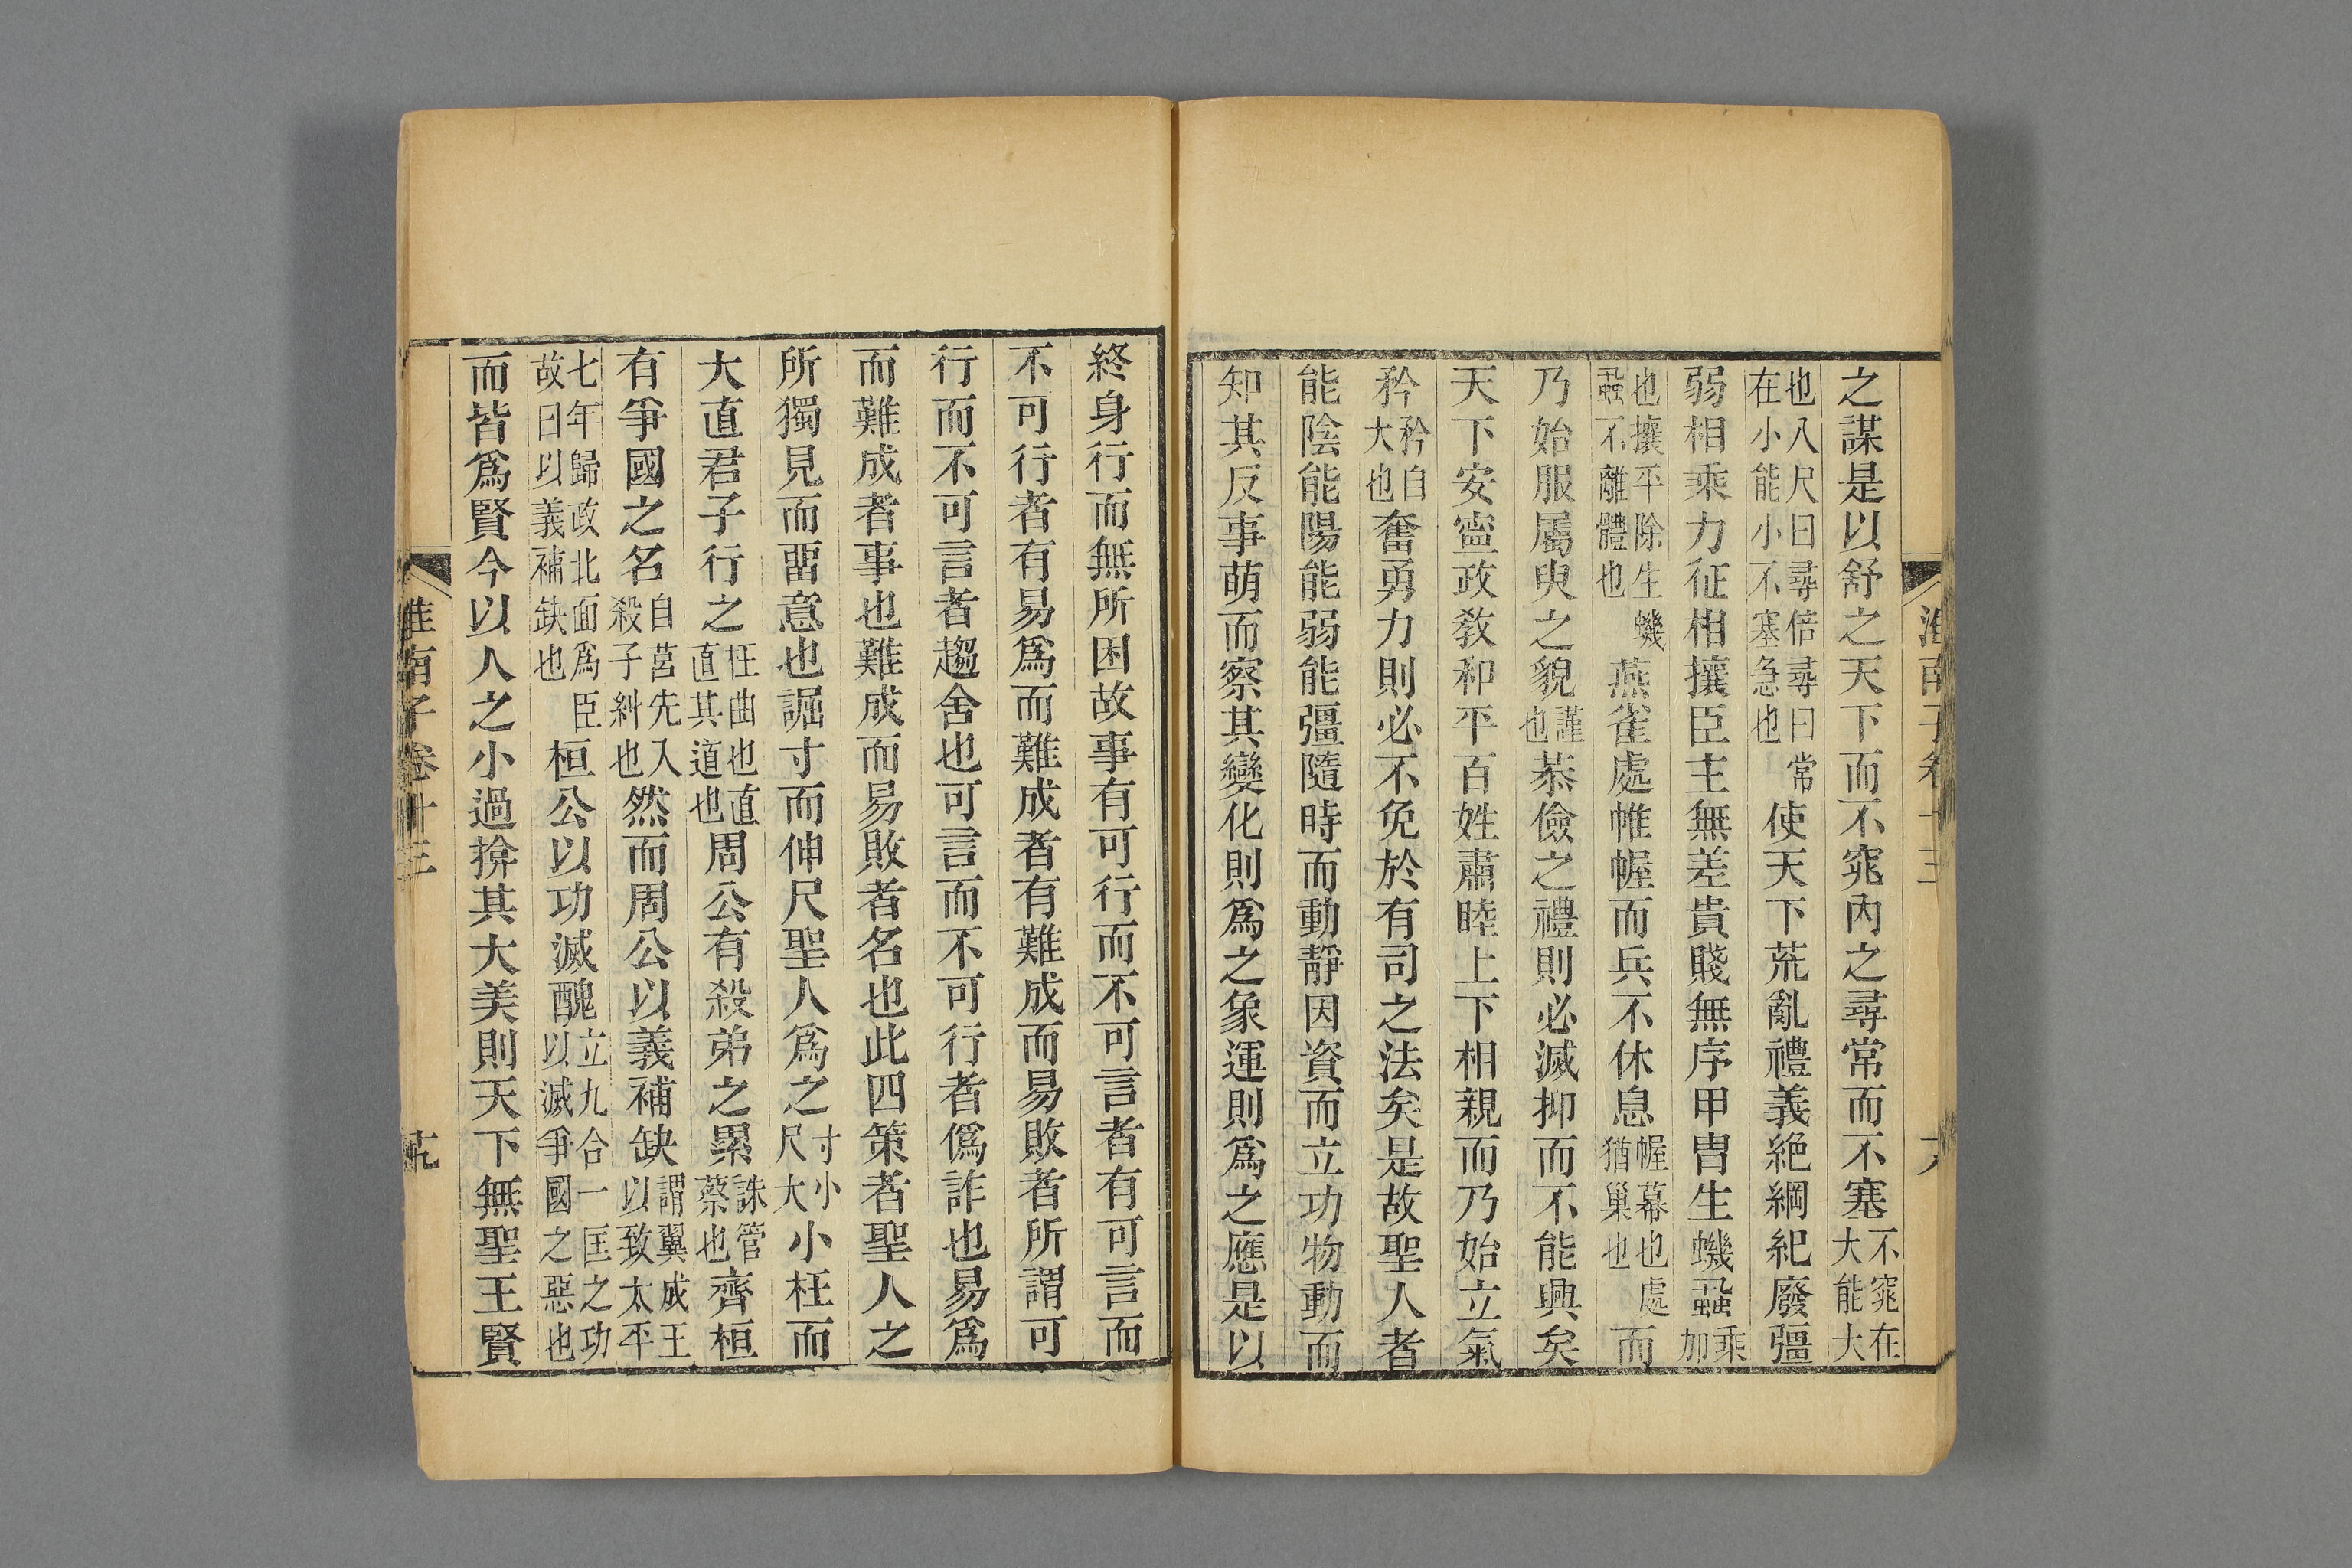 之謀是以舒之天下而不窕內之尋常而不塞不窕在大能大
也八尺曰尋倍尋曰常在小能小不塞急也使天下荒亂禮義絶綱紀廢彊
弱相乘力征相攘臣主無差貴賤無序甲胄生蟣蝨乘加
也攘平除生蟣蝨不離體也燕雀處帷幄而兵不休息幄幕也處猶巢也而
乃始服屬臾之貌謹也恭儉之禮則必滅抑而不能興矣
天下安寍政教和平百姓肅睦上下相親而乃始立氣
矜矜自大也奮勇力則必不免於有司之法矣是故聖人者
能陰能陽能弱能彊隨時而動靜因資而立功物動而
知其反事萌而察其變化則爲之象運則爲之應是以
終身行而無所困故事有可行而不可言者有可言而
不可行者有易爲而難成者有難成而易敗者所謂可
行而不可言者趨舍也可言而不可行者僞詐也易爲
而難成者事也難成而易敗者名也此四策者聖人之
所獨見而畱意也誳寸而伸尺聖人爲之寸小尺大小枉而
大直君子行之枉曲也直直其道也周公有殺弟之累誅管蔡也齊桓
有爭國之名自莒先入殺子糾也然而周公以義補缺謂翼成王以致太平
七年歸政北面爲臣故曰以義補缺也桓公以功滅醜立九合一匡之功以滅爭國之惡也
而皆爲賢今以人之小過揜其大美則天下無聖王賢
淮南子卷十三